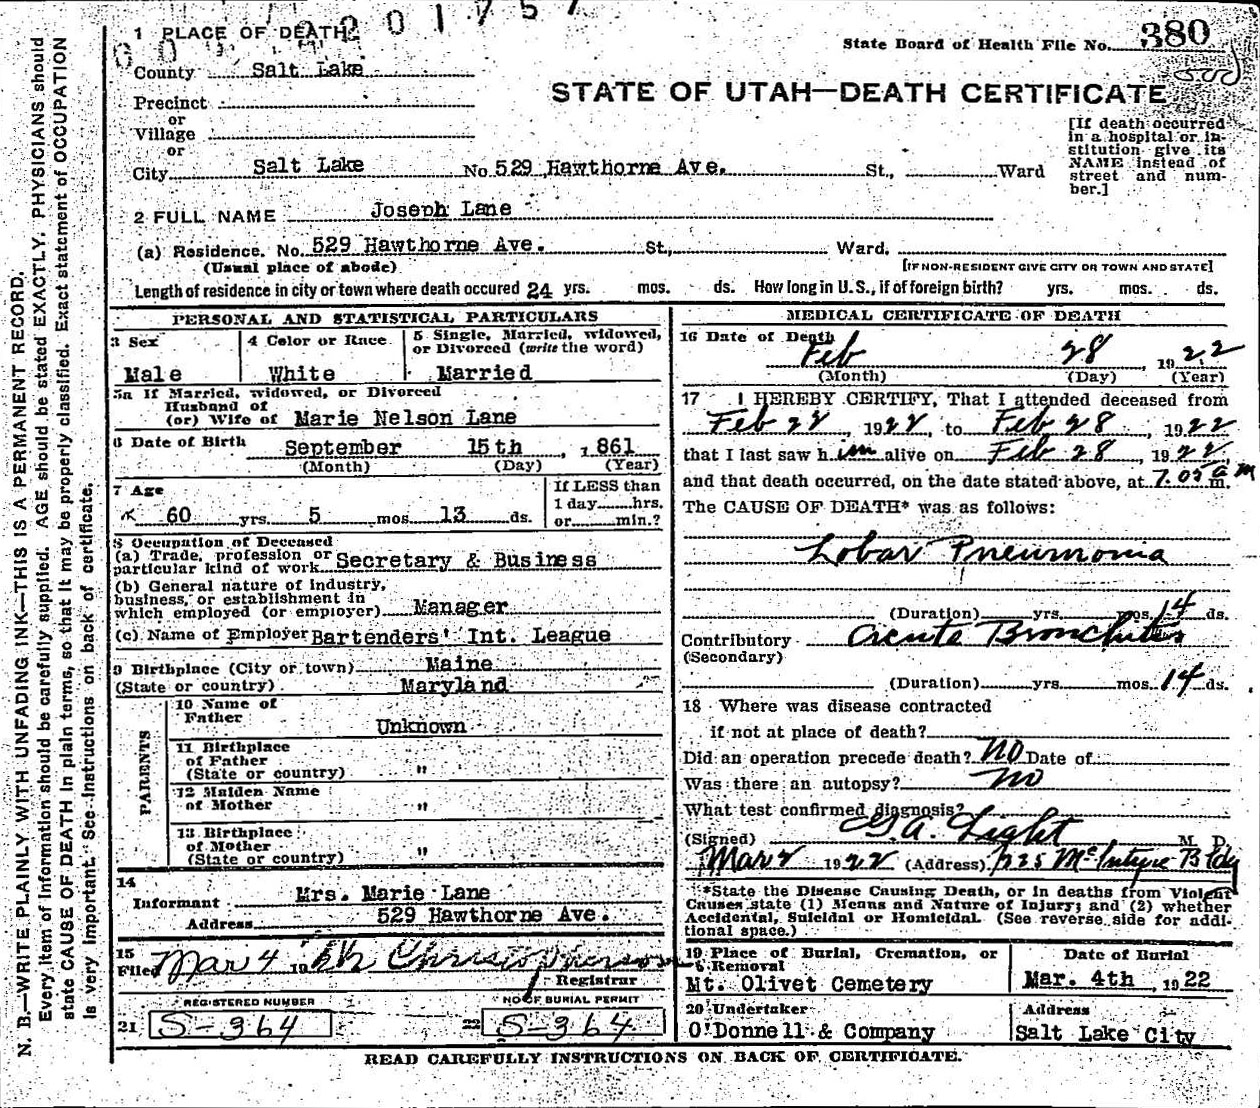 201757
1 PLACE OF DEATH
State Board of Health File No. 380
County Salt Lake
STATE OF UTAH—DEATH CERTIFICATE
Precinct
or
Village
or
City Salt Lake No. 529 Hawthorne Ave. St., Ward
[If death occurred
in a hospital or in-
stitution give its
NAME instead of
street and num-
ber.]
2 FULL NAME Joseph Lane
(a) Residence. No. 529 Hawthorne Ave. St., Ward.
(Usual place of abode) [IF NON-RESIDENT GIVE CITY OR TOWN AND STATE]
Length of residence in city or town where death occured 24 yrs. mos. ds. How long in U.S., if of foreign birth? yrs. mos. ds.
PERSONAL AND STATISTICAL PARTICULARS
3 Sex
Male
4 Color or Race
White
5 Single, Married, widowed,
or Divorced (write the word)
Married
5a If Married, widowed, or Divorced
Husband of
(or) Wife of Marie Nelson Lane
6 Date of Birth September 15th, 1861
(Month) (Day) (Year)
7 Age
60 yrs. 5 mos. 13 ds.
If LESS than
1 day hrs.
or min.?
8 Occupation of Deceased
(a) Trade, profession or
particular kind of work Secretary & Business
(b) General nature of Industry,
business, or establishment in
which employed (or employer) Manager
(c) Name of Employer Bartenders' Int. League
9 Birthplace (City or town) Maine
(State or country) Maryland
PARENTS
10 Name of
Father Unknown
11 Birthplace
of Father
(State or country) "
12 Maiden Name
of Mother "
13 Birthplace
of Mother
(State or country) "
14
Informant Mrs. Marie Lane
Address 529 Hawthorne Ave.
15
Filed Mar 4 19 Christopherson
Registrar
REGISTERED NUMBER
21 S-364
NO OF BURIAL PERMIT
22 S-364
MEDICAL CERTIFICATE OF DEATH
16 Date of Death
Feb 28, 1922
(Month) (Day) (Year)
17 I HEREBY CERTIFY, That I attended deceased from
Feb 22, 1922, to Feb 28, 1922
that I last saw him alive on Feb 28, 1922,
and that death occurred, on the date stated above, at 7.05 a m.
The CAUSE OF DEATH* was as follows:
Lobar Pneumonia
(Duration) yrs. mos. 14 ds.
Contributory Acute Bronchitis
(Secondary)
(Duration) yrs. mos. 14 ds.
18 Where was disease contracted
if not at place of death?
Did an operation precede death? NO Date of
Was there an autopsy? no
What test confirmed diagnosis?
(Signed) G. A. Light M. D.
Mar 2 1922 (Address) 225 McIntyre Bldg
*State the Disease Causing Death, or in deaths from Violent
Causes state (1) Means and Nature of Injury; and (2) whether
Accidental, Suicidal or Homicidal. (See reverse side for addi-
tional space.)
19 Place of Burial, Cremation, or
Removal
Mt. Olivet Cemetery
Date of Burial
Mar. 4th, 1922
20 Undertaker
O'Donnell & Company
Address
Salt Lake City
READ CAREFULLY INSTRUCTIONS ON BACK OF CERTIFICATE.
N. B.—WRITE PLAINLY WITH UNFADING INK—THIS IS A PERMANENT RECORD.
Every item of information should be carefully supplied. AGE should be stated EXACTLY. PHYSICIANS should
state CAUSE OF DEATH in plain terms, so that it may be properly classified. Exact statement of OCCUPATION
is very important. See instructions on back of certificate.